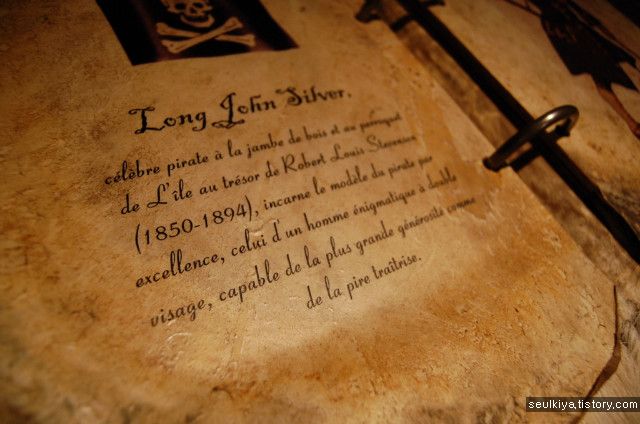 Long John Silver,
célèbre pirate à la jambe de bois et au perroquet
de L'île au trésor de Robert Louis Stevenson
(1850-1894), incarne le modèle du pirate par
excellence, celui d'un homme énigmatique à double
visage, capable de la plus grande générosité comme
de la pire traîtrise.
seulkiya.tistory.com